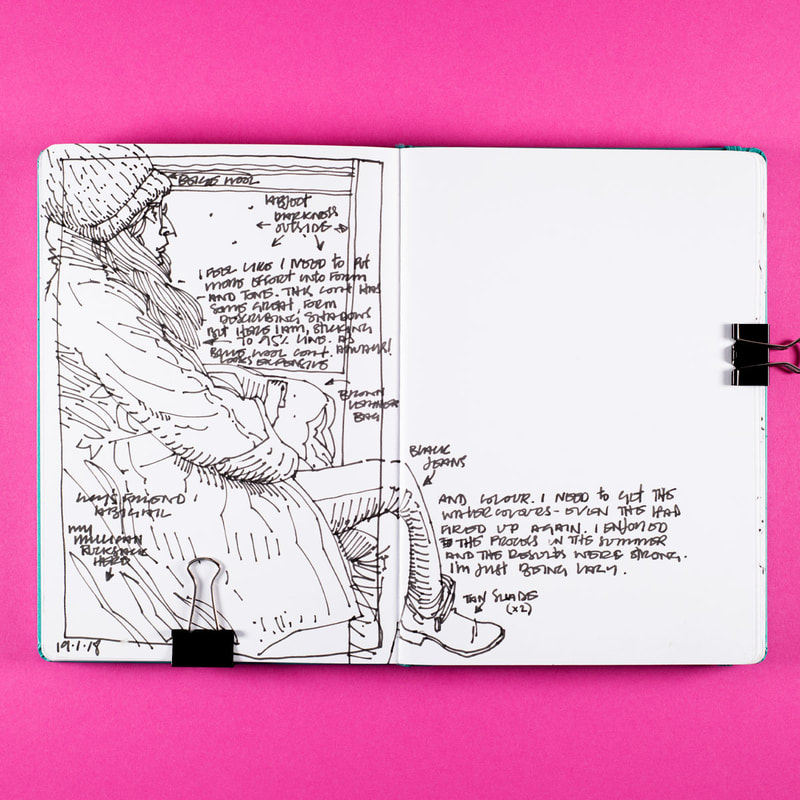 BEIGE WOOL
ABJECT
DARKNESS
OUTSIDE
I FEEL LIKE I NEED TO PUT
MORE EFFORT INTO FORM
AND TONE. THIS COAT HAS
SOME GREAT, FORM
DESCRIBING SHADOWS
BUT HERE I AM, STICKING
TO 95% LINE. AS
ALWAYS!
BLUE WOOL COAT.
LOOKS EXPENSIVE
BROWN
LEATHER
BAG
FRIEND
ABIGAIL
MY
MILLICAN
RUCKSACK
HERE
19.1.18
BLACK
JEANS
AND COLOUR. I NEED TO GET THE
WATERCOLOURS - EVEN THE IPAD
FIRED UP AGAIN. I ENJOYED
THE PROCESS IN THE SUMMER
AND THE RESULTS WERE STRONG.
I'M JUST BEING LAZY.
TAN SUADE
(x2)